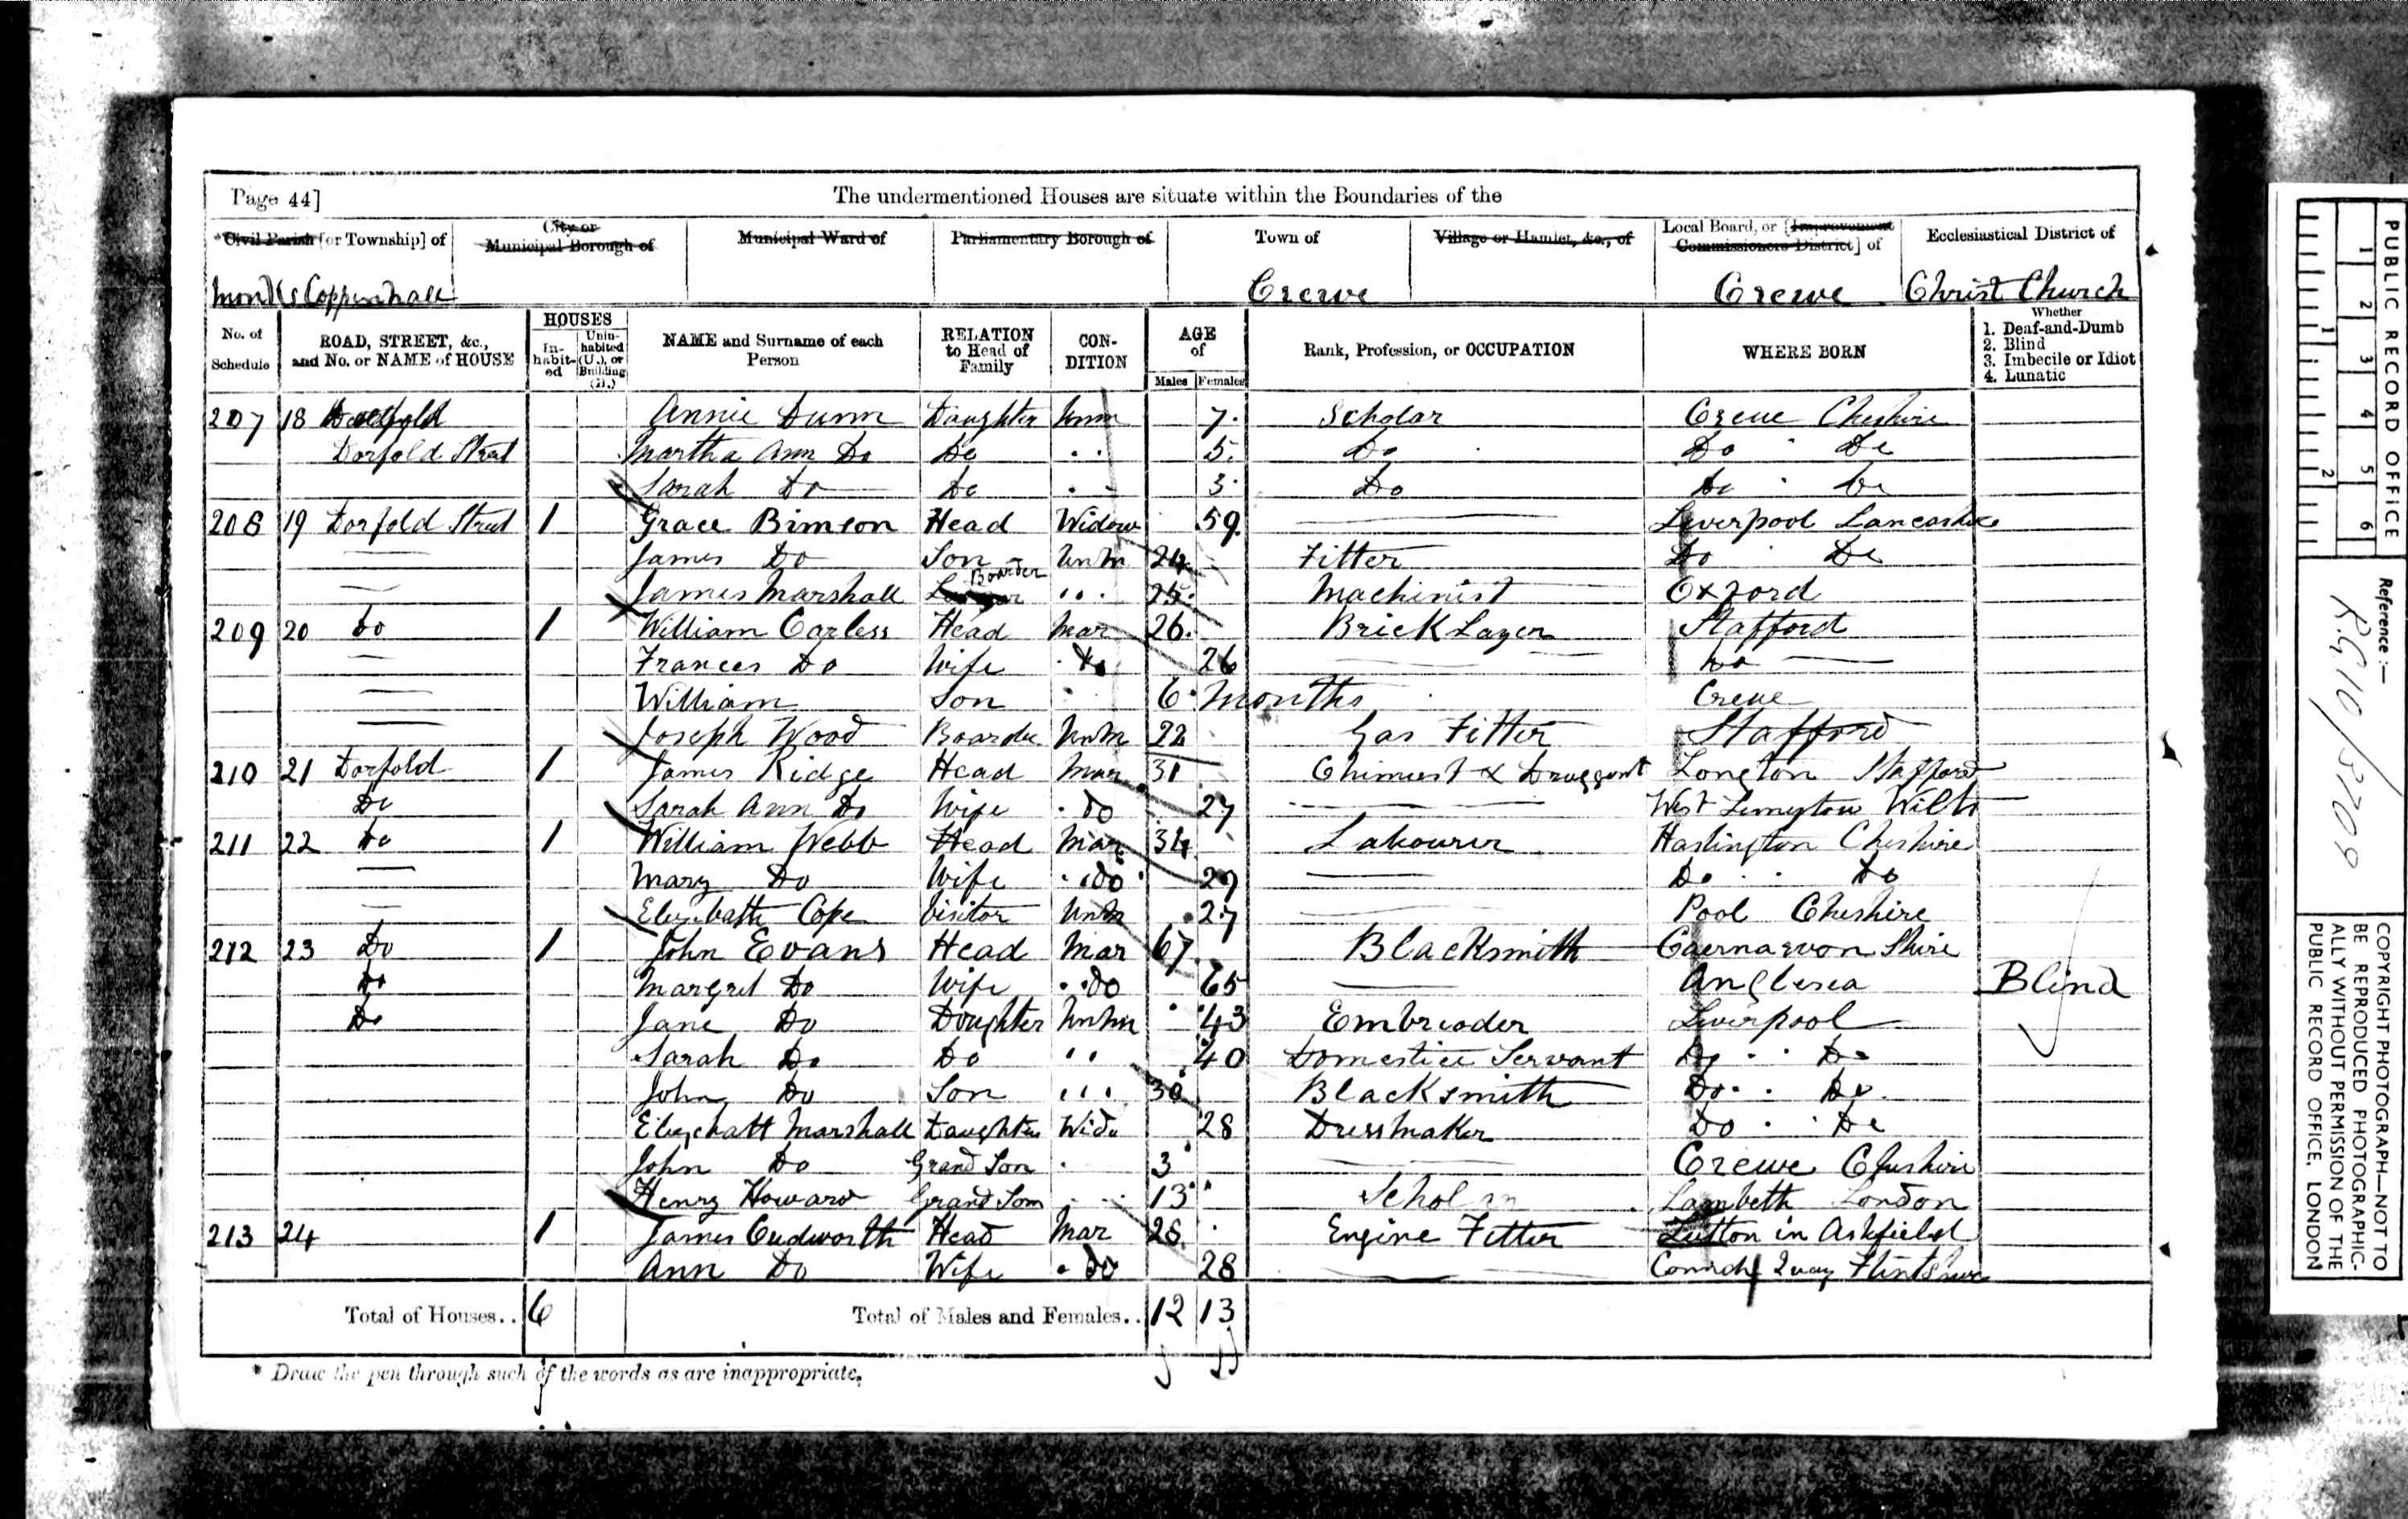 Page 44]
The undermentioned Houses are situate within the Boundaries of the
*Civil Parish [or Township] of
City or Municipal Borough of
Municipal Ward of
Parliamentary Borough of
Town of
Village or Hamlet, &c., of
Local Board, or [Improvement Commissioners District] of
Ecclesiastical District of
Monks Coppenhall Crewe Crewe Christ Church
No. of Schedule
ROAD, STREET, &c., and No. or NAME of HOUSE
HOUSES
In-habit-ed
Unin-habited (U.), or Building (B.)
NAME and Surname of each Person
RELATION to Head of Family
CON-DITION
AGE of
Males Females
Rank, Profession, or OCCUPATION
WHERE BORN
Whether
1. Deaf-and-Dumb
2. Blind
3. Imbecile or Idiot
4. Lunatic
207 18 Annie Dunn Daughter Unm 7 Scholar Crewe Cheshire
Dorfold Street Martha Ann Do Do 5 Do Do Do
Sarah Do Do 3 Do Do Do
208 19 Dorfold Street 1 Grace Bimson Head Widow 59 Liverpool Lancashire
James Do Son Unm 24 Fitter Do Do
James Marshall Boarder 25 Machinist Oxford
209 20 Do 1 William Carless Head Mar 26 Brick Layer Stafford
Frances Do Wife Do 26 Do
William Son 6 Months Crewe
Joseph Wood Boarder Unm 22 Gas Fitter Stafford
210 21 Dorfold 1 James Ridge Head Mar 31 Chimist & Druggest Longton Stafford
Do Sarah Ann Do Wife Do 27 West Wilts
211 22 Do 1 William Webb Head Mar 34 Labourer Haslington Cheshire
Mary Do Wife Do 29 Do Do
Elizabath Cope Visitor Unm 27 Pool Cheshire
212 23 Do 1 John Evans Head Mar 67 Blacksmith Caernarvon Shire
Do Margret Do Wife Do 65 Anglesea Blind
Do Jane Do Doughter Unm 43 Embroader Liverpool
Sarah Do Do 40 Domestice Servant Do Do
John Do Son 30 Blacksmith Do Do
Marshall Daughter Wido 28 Dressmaker Do Do
John Do Grand Son 3 Crewe Cheshire
Henry Howard Grand Son 13 Scholar Lambeth London
213 24 1 James Cudworth Head Mar 28 Engine Fitter Sutton in Ashfield
Ann Do Wife Do 28 Quay Flintshire
Total of Houses.. 6
Total of Males and Females.. 12 13
* Draw the pen through such of the words as are inappropriate.
PUBLIC RECORD OFFICE
1 2 3 4 5 6
1 2
Reference:—
R.G. 10/3709
COPYRIGHT PHOTOGRAPH—NOT TO BE REPRODUCED PHOTOGRAPHIC-ALLY WITHOUT PERMISSION OF THE PUBLIC RECORD OFFICE, LONDON